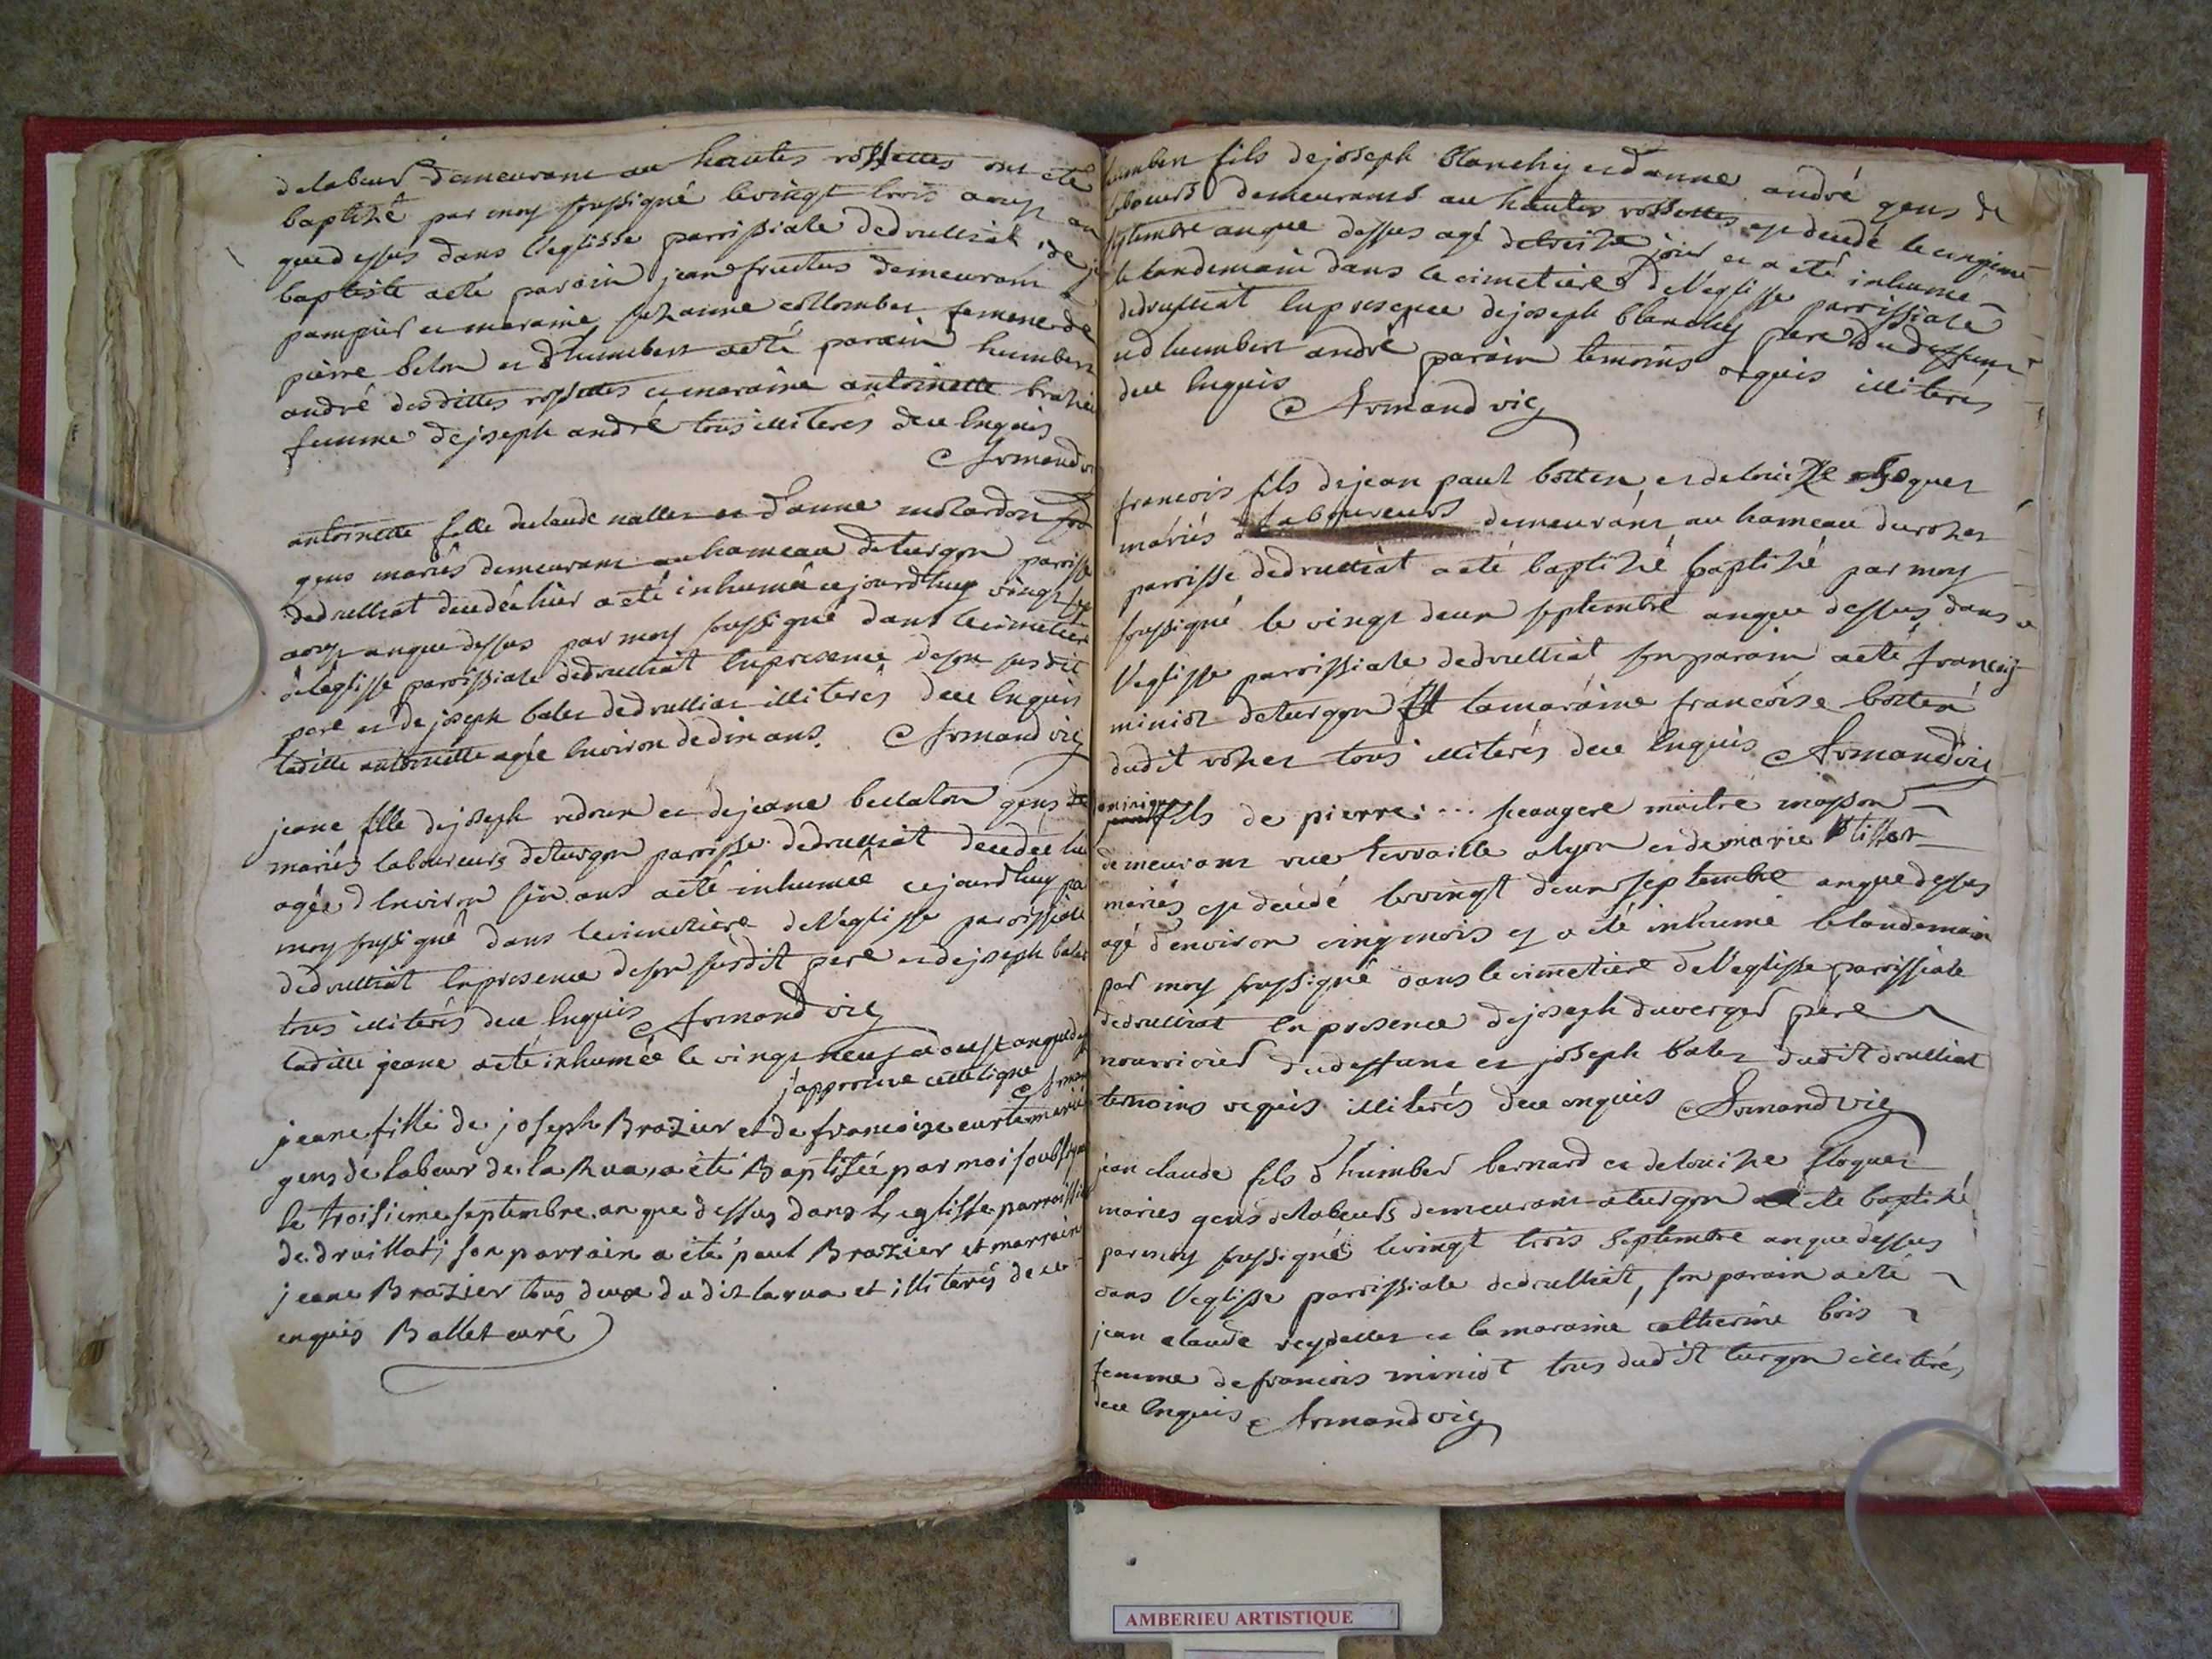 delabeur demeurant au hautes rossettes ont eté
baptizé par moy soussigné le vingt trois aoust an
que dessus dans l'eglisse parrissiale dedruilliat, de
baptiste aeté parain jean fructus demeurant a
pampier et maraine suzanne collombet femme de
pierre belon et d'humbert aeté parain humbert
andré desdittes rossettes et maraine antoinette brazie
femme dejoseph andré tous illiterés dece enquis
Armand vic
antoinette fille declaude nallet et d'anne molardon
gens mariés demeurant au hameau deturgon parrisse
dedruilliat decedée hier a eté inhumée cejourdhuy vingt sept
aoust an que dessus par moy soussigné dans le cimetiere
de leglisse parrissiale dedruilliat en presence deson susdit
pere et de joseph balet dedruilliat illiterés dece enquis
ladille antoinette agée environ dedix ans. Armand vic
jeane fille dejoseph redoux et dejeane bellaton gens de
mariés laboureurs deturgon parrisse dedruilliat decedée
agée d'environ six ans aeté inhumée cejourdhuy par
moy soussigné dans le cimetiere del'eglisse parrissiale
dedruilliat en presence deson susdit pere et dejoseph balet
tous illiterés dece enquis Armand vic
ladille jeane aeté inhumée le vingt neuf aoust an que dessus
japprouve cette ligne Arman
jeane fille de joseph Brazier et de francoise curte mariés
gens de labeur de la Rua, a èté Baptisée par moi soubsigné
le troisieme septembre an que dessus dans L'eglisse parroissia
de druillat; son parrain a èté paul Brazier et marraine
jeane Brazier tous deux du dit larua et illiterés de ce
enquis Ballet curé
humbert fils dejoseph blanchy et d'anne andré gens de
labeurs demeurants au hautes rossettes est decedé le cinquieme
septembre an que dessus agé detreize jour et a eté inhumé
le landemain dans le cimetiere de l'eglisse parrissiale
dedruilliat en presence dejoseph blanchy pere dudeffunt
et d'humbert andré parain temoins requis illiterés
dece enquis Armand vic
francois fils dejean paul botten, et delouize floquet
mariés laboureurs demeurant au hameau durozet
parrisse dedruilliat a eté baptizé baptizé par moy
soussigné le vingt deux septembre an que dessus, dans
l'eglisse parrissiale dedruilliat son parain aeté francois
miniot deturgon et la maraine francoise botten
dudit rozet tous illiterés dece enquis Armand vic
fils de pierre ... maitre masson
demeurant rue ferraille a lyon et de marie tissot
mariés est decedé le vingt deux septembre an que dessus
agé d'environ cinq mois et a eté inhumé le landemain
par moy soussigné dans le cimetiere del'eglisse parrissiale
dedruilliat en presence dejoseph duverger pere
nourricier dudeffunt et joseph balet dudit druilliat
temoins requis illiterés dece enquis Armand vic
jean claude fils d'humber bernard et delouize floquet
mariés gens delabeurs demeurant a turgon a eté baptizé
par moy soussigné le vingt trois septembre an que dessus
dans l'eglisse parrissiale dedruilliat, son parain aeté
jean claude reydellet et la maraine catherine bois
femme de francois miniot tous dudit turgon illiterés
dece enquis Armand vic
AMBERIEU ARTISTIQUE